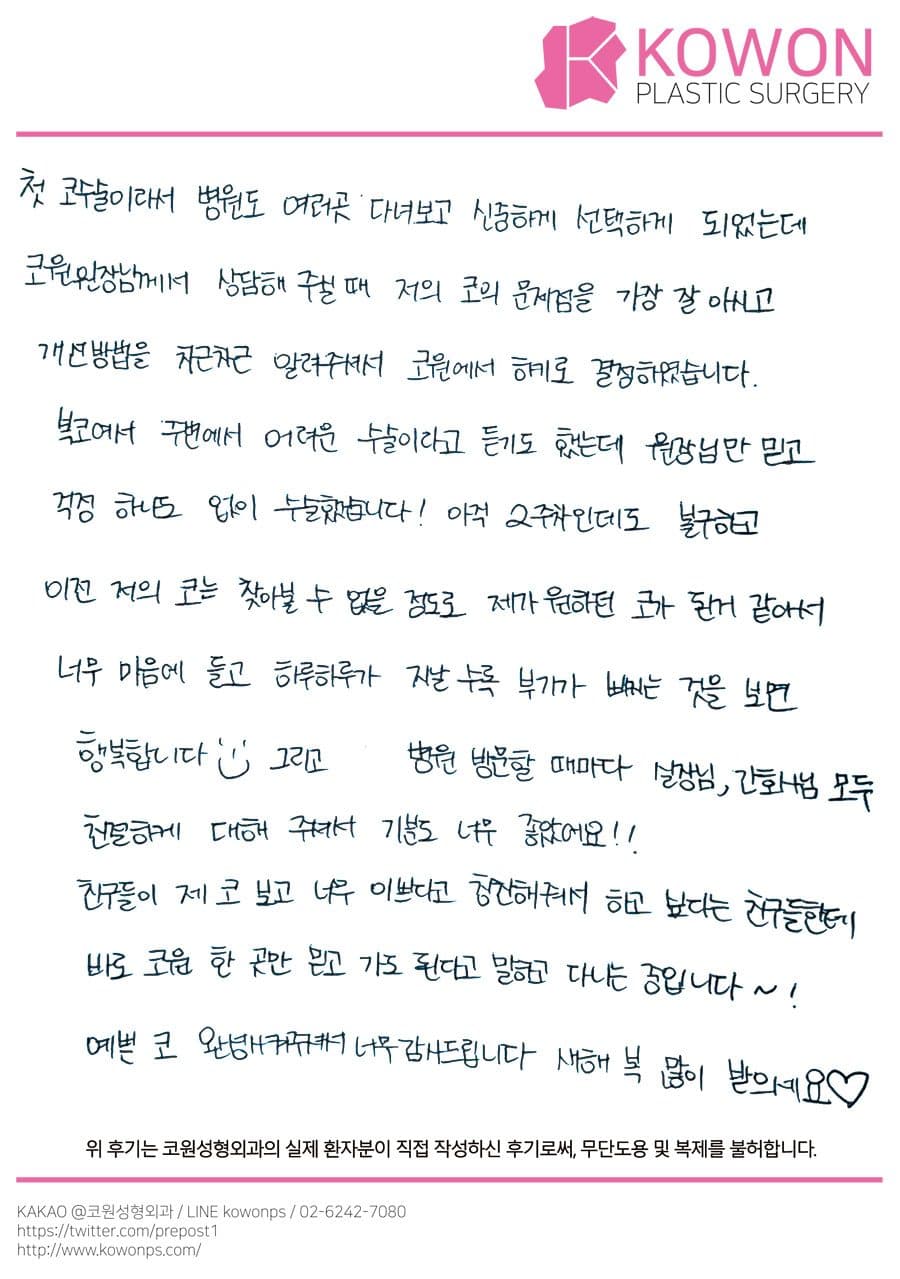 KOWON
PLASTIC SURGERY
첫 코수술이라서 병원도 여러곳 다녀보고 신중하게 선택하게 되었는데
코원원장님께서 상담해 주실 때 저의 코의 문제점을 가장 잘 아시고
개선방법을 차근차근 알려주셔서 코원에서 하기로 결정하였습니다.
복코여서 주변에서 어려운 수술이라고 듣기도 했는데 원장님만 믿고
걱정 하나도 없이 수술했습니다! 아직 2주차인데도 불구하고
이전 저의 코는 찾아볼 수 없을 정도로 제가 원하던 코가 된거 같아서
너무 마음에 들고 하루하루가 지날 수록 부기가 빠지는 것을 보면
행복합니다 그리고 병원 방문할 때마다 실장님, 간호사님 모두
친절하게 대해 주셔서 기분도 너무 좋았어요!!
친구들이 제 코 보고 너무 이쁘다고 칭찬해줘서 하고 싶다는 친구들한테
바로 코원 한 곳만 믿고 가도 된다고 말하고 다니는 중입니다~!
예쁜 코 완성시켜주셔서 너무 감사드립니다 새해 복 많이 받으세요♡
위 후기는 코원성형외과의 실제 환자분이 직접 작성하신 후기로써, 무단도용 및 복제를 불허합니다.
KAKAO @코원성형외과 / LINE kowonps / 02-6242-7080
https://twitter.com/prepost1
http://www.kowonps.com/